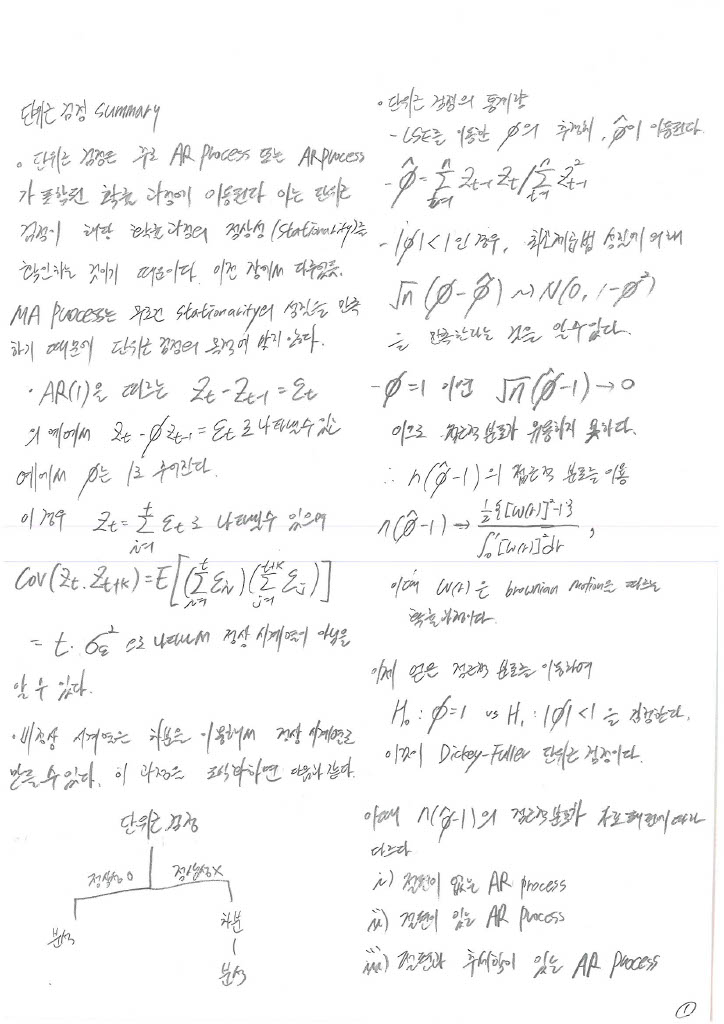 단위근 검정 summary
◦ 단위근 검정은 주로 AR process 또는 AR process
가 포함된 확률 과정에 이용된다 이는 단위근
검정이 해당 확률과정의 정상성(stationarity)를
확인하는 것이기 때문이다. 이전 장에서 다루었듯.
MA process는 무조건 stationarity의 성질을 만족
하기 때문에 단위근 검정의 목적에 맞지 않다.
· AR(1)을 따르는 Zt - Zt-1 = εt
의 예에서 Zt - ϕZt-1 = εt 로 나타낼 수 있는
예에서 ϕ는 1로 주어진다.
이 경우 Zt = Σ(i=1→t) εt 로 나타낼 수 있으며
Cov(Zt, Zt+k) = E[(Σ(i=1→t) εi)(Σ(j=1→t+k) εj)]
= t · σε² 으로 나타나서 정상 시계열이 아님을
알 수 있다.
· 비정상 시계열은 차분을 이용해서 정상 시계열로
만들 수 있다. 이 과정을 도식화하면 다음과 같다.
단위근 검정
정상성 O 정상성 X
분석 차분
분석
◦ 단위근 검정의 통계량
- LSE를 이용한 ϕ의 추정치, ϕ̂이 이용된다.
- ϕ̂ = Σ(t=1→n) Zt-1 Zt / Σ(t=1→n) Z²t-1
- |ϕ| < 1 인 경우, 최소제곱법 성질에 의해
√n (ϕ - ϕ̂) ~ N(0, 1-ϕ²)
을 만족한다는 것을 알 수 있다.
- ϕ = 1 이면 √n(ϕ̂-1) → 0
이므로 점근적 분포가 유용하지 못하다.
∴ n(ϕ̂-1)의 점근적 분포를 이용
n(ϕ̂-1) → ½{[W(1)]²-1} / ∫₀¹[W(r)]²dr ,
이때 W(r)은 brownian motion을 따르는
확률과정이다.
이제 얻은 점근적 분포를 이용하여
H₀ : ϕ=1 vs H₁ : |ϕ|<1 을 검정한다.
이것이 Dickey-Fuller 단위근 검정이다.
이때 n(ϕ̂-1)의 점근적 분포가 자료 패턴에 따라
다르다
i) 절편이 없는 AR process
ii) 절편이 있는 AR process
iii) 절편과 추세항이 있는 AR process
①